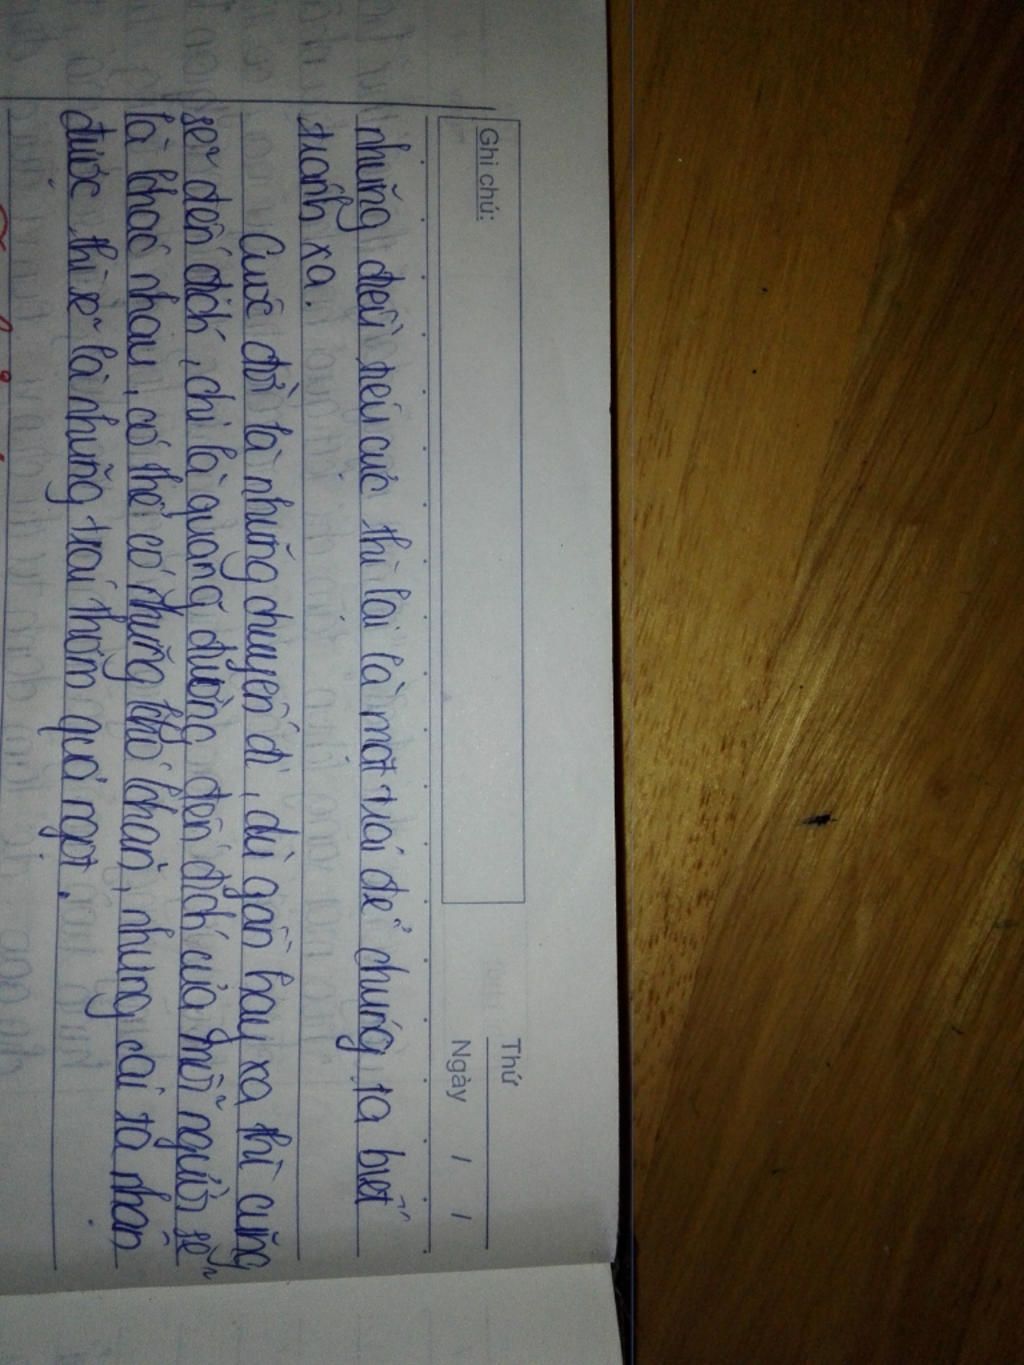 Ghi chú:
Thứ
Ngày / /
những điều tiêu cực thì lại là một trái để chúng ta biết
tránh xa.
Cuộc đời là những chuyến đi, dù gần hay xa thì cũng
sẽ đến đích, chỉ là quang đường đến đích của mỗi người sẽ
là khác nhau, có thể có những khó khăn, nhưng cái ta nhận
được thì sẽ là những trái thơm quả ngọt.